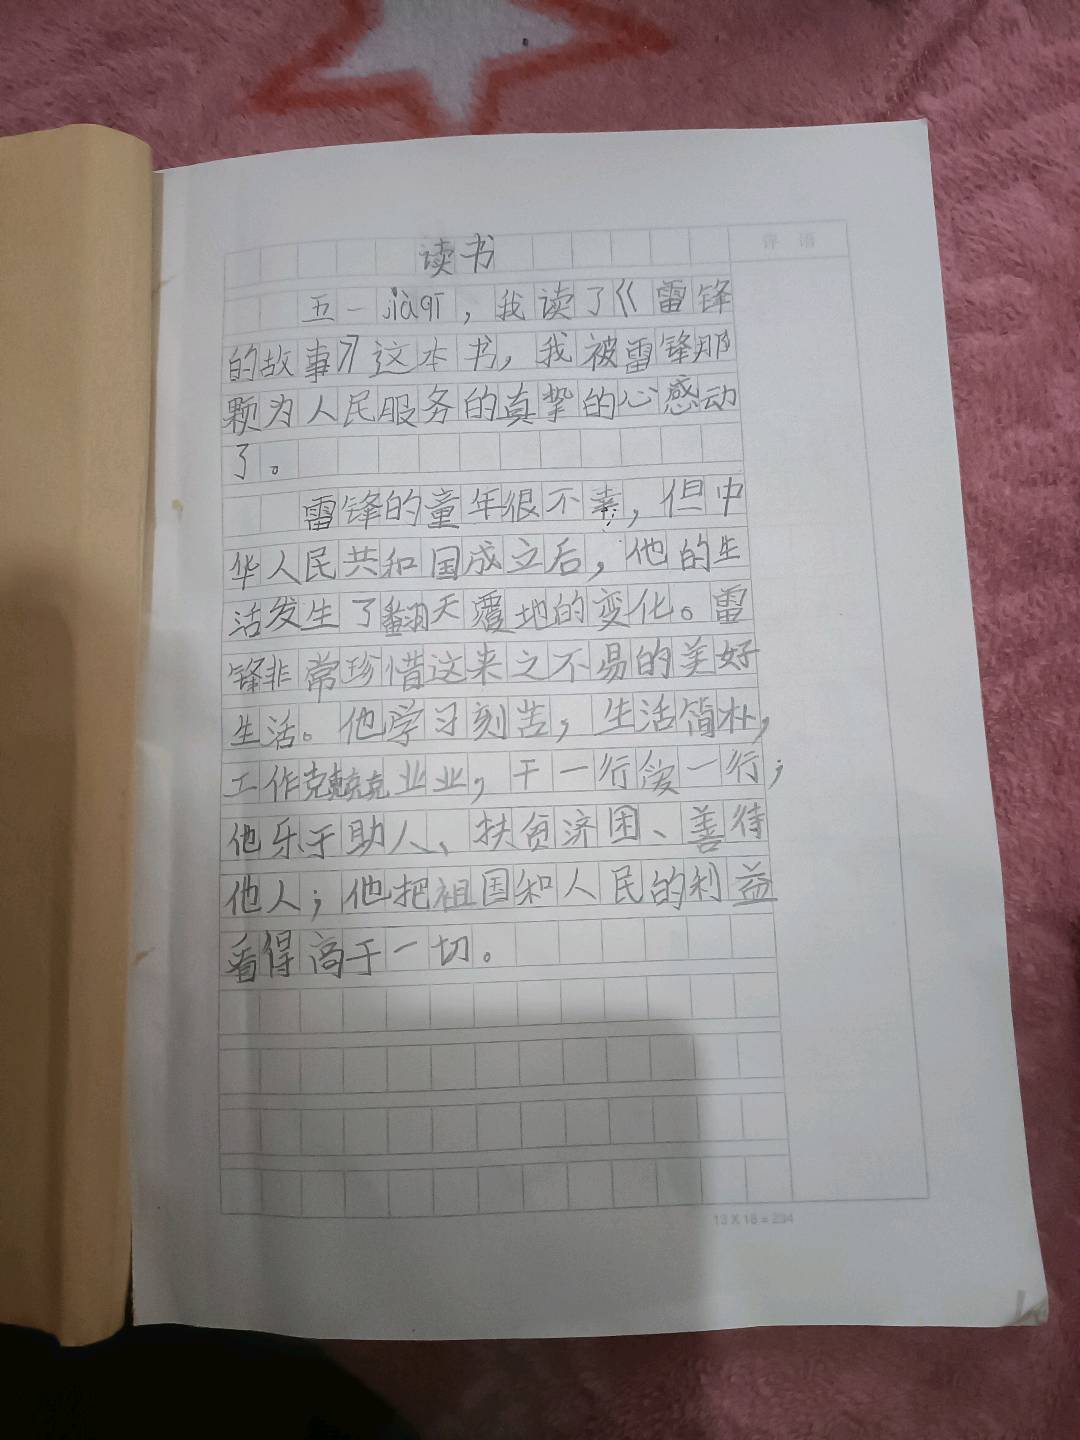 读书
评语
五一jiàqī，我读了《雷锋
的故事》这本书，我被雷锋那
颗为人民服务的真挚的心感动
了。
雷锋的童年很不幸，但中
华人民共和国成立后，他的生
活发生了翻天覆地的变化。雷
锋非常珍惜这来之不易的美好
生活。他学习刻苦，生活简朴，
工作兢兢业业，干一行爱一行；
他乐于助人、扶贫济困、善待
他人；他把祖国和人民的利益
看得高于一切。
13 X 18 = 234